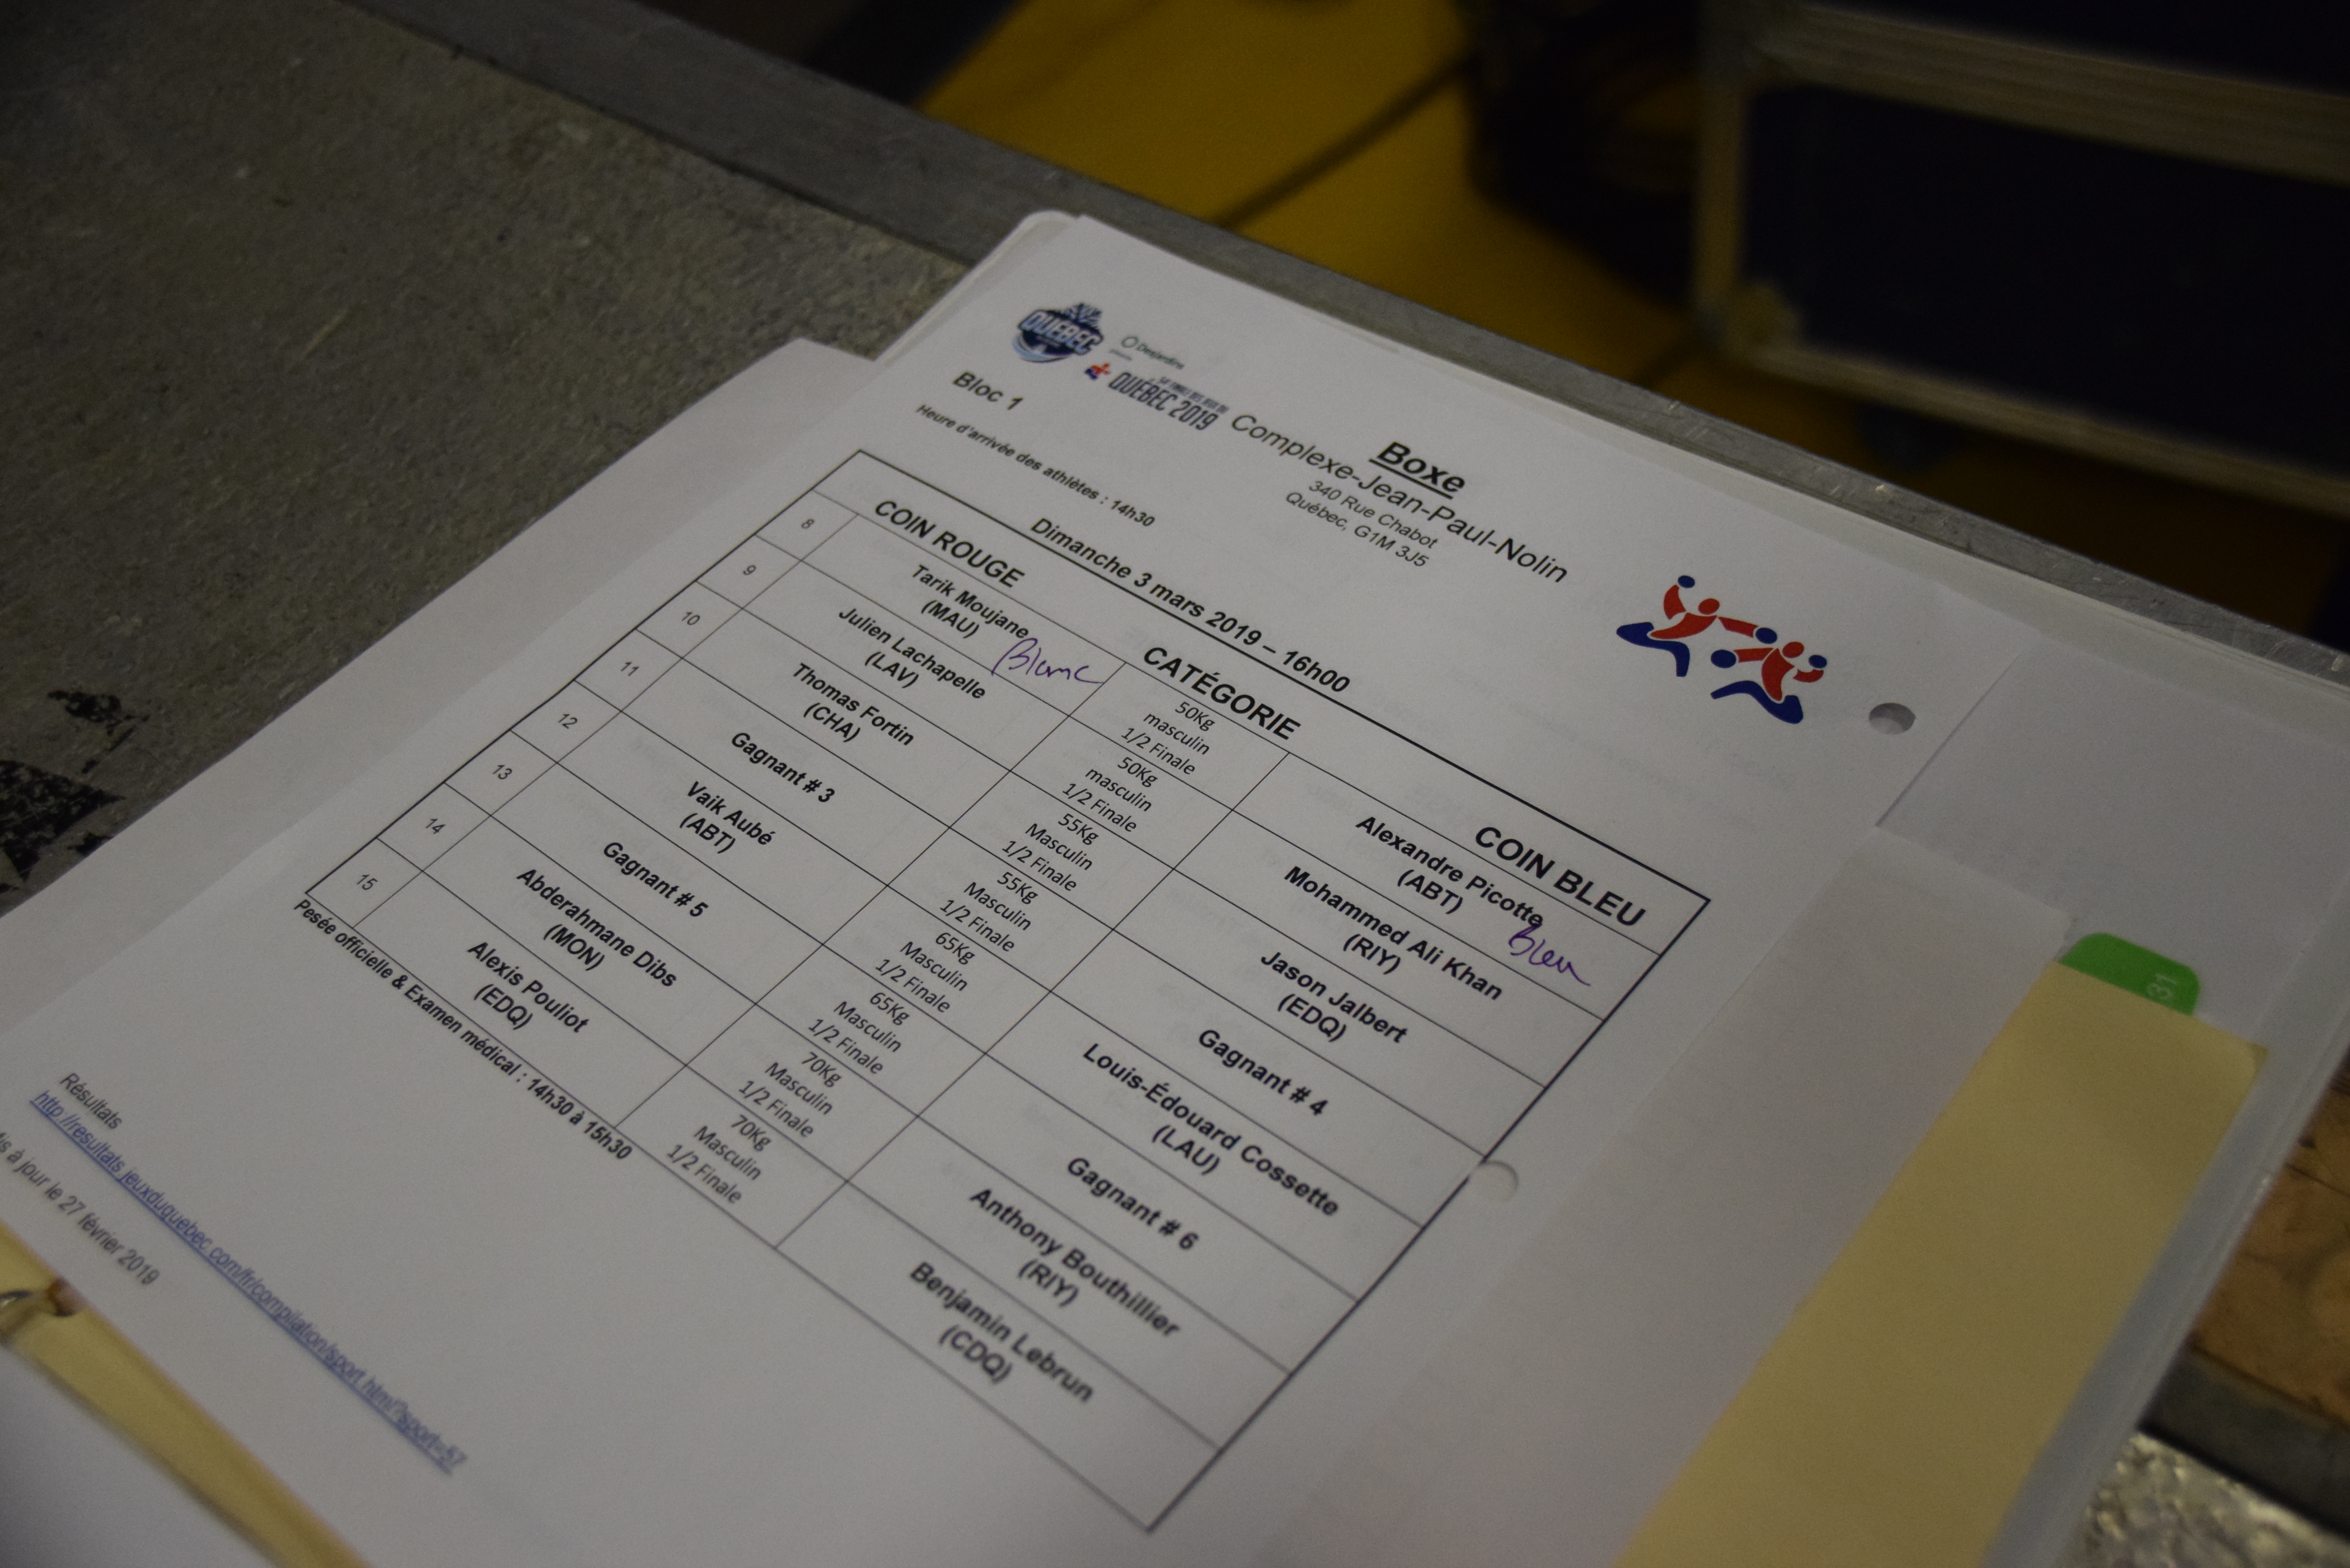 QUÉBEC
Desjardins
présente
54e FINALE DES JEUX DU
QUÉBEC 2019
Boxe
Complexe-Jean-Paul-Nolin
340 Rue Chabot
Québec, G1M 3J5
Bloc 1
Heure d'arrivée des athlètes : 14h30
Dimanche 3 mars 2019 – 16h00
COIN ROUGE CATÉGORIE COIN BLEU
8 Tarik Moujane 50Kg Alexandre Picotte
(MAU) Blanc masculin (ABT) Bleu
1/2 Finale
9 Julien Lachapelle 50Kg Mohammed Ali Khan
(LAV) masculin (RIY)
1/2 Finale
10 Thomas Fortin 55Kg Jason Jalbert
(CHA) Masculin (EDQ)
1/2 Finale
11 Gagnant # 3 55Kg Gagnant # 4
Masculin
1/2 Finale
12 Vaik Aubé 65Kg Louis-Édouard Cossette
(ABT) Masculin (LAU)
1/2 Finale
13 Gagnant # 5 65Kg Gagnant # 6
Masculin
1/2 Finale
14 Abderahmane Dibs 70Kg Anthony Bouthillier
(MON) Masculin (RIY)
1/2 Finale
15 Alexis Pouliot 70Kg Benjamin Lebrun
(EDQ) Masculin (CDQ)
1/2 Finale
Pesée officielle & Examen médical : 14h30 à 15h30
Résultats
http://resultats.jeuxduquebec.com/fr/compilation/sport.html?sport=57
à jour le 27 février 2019
31